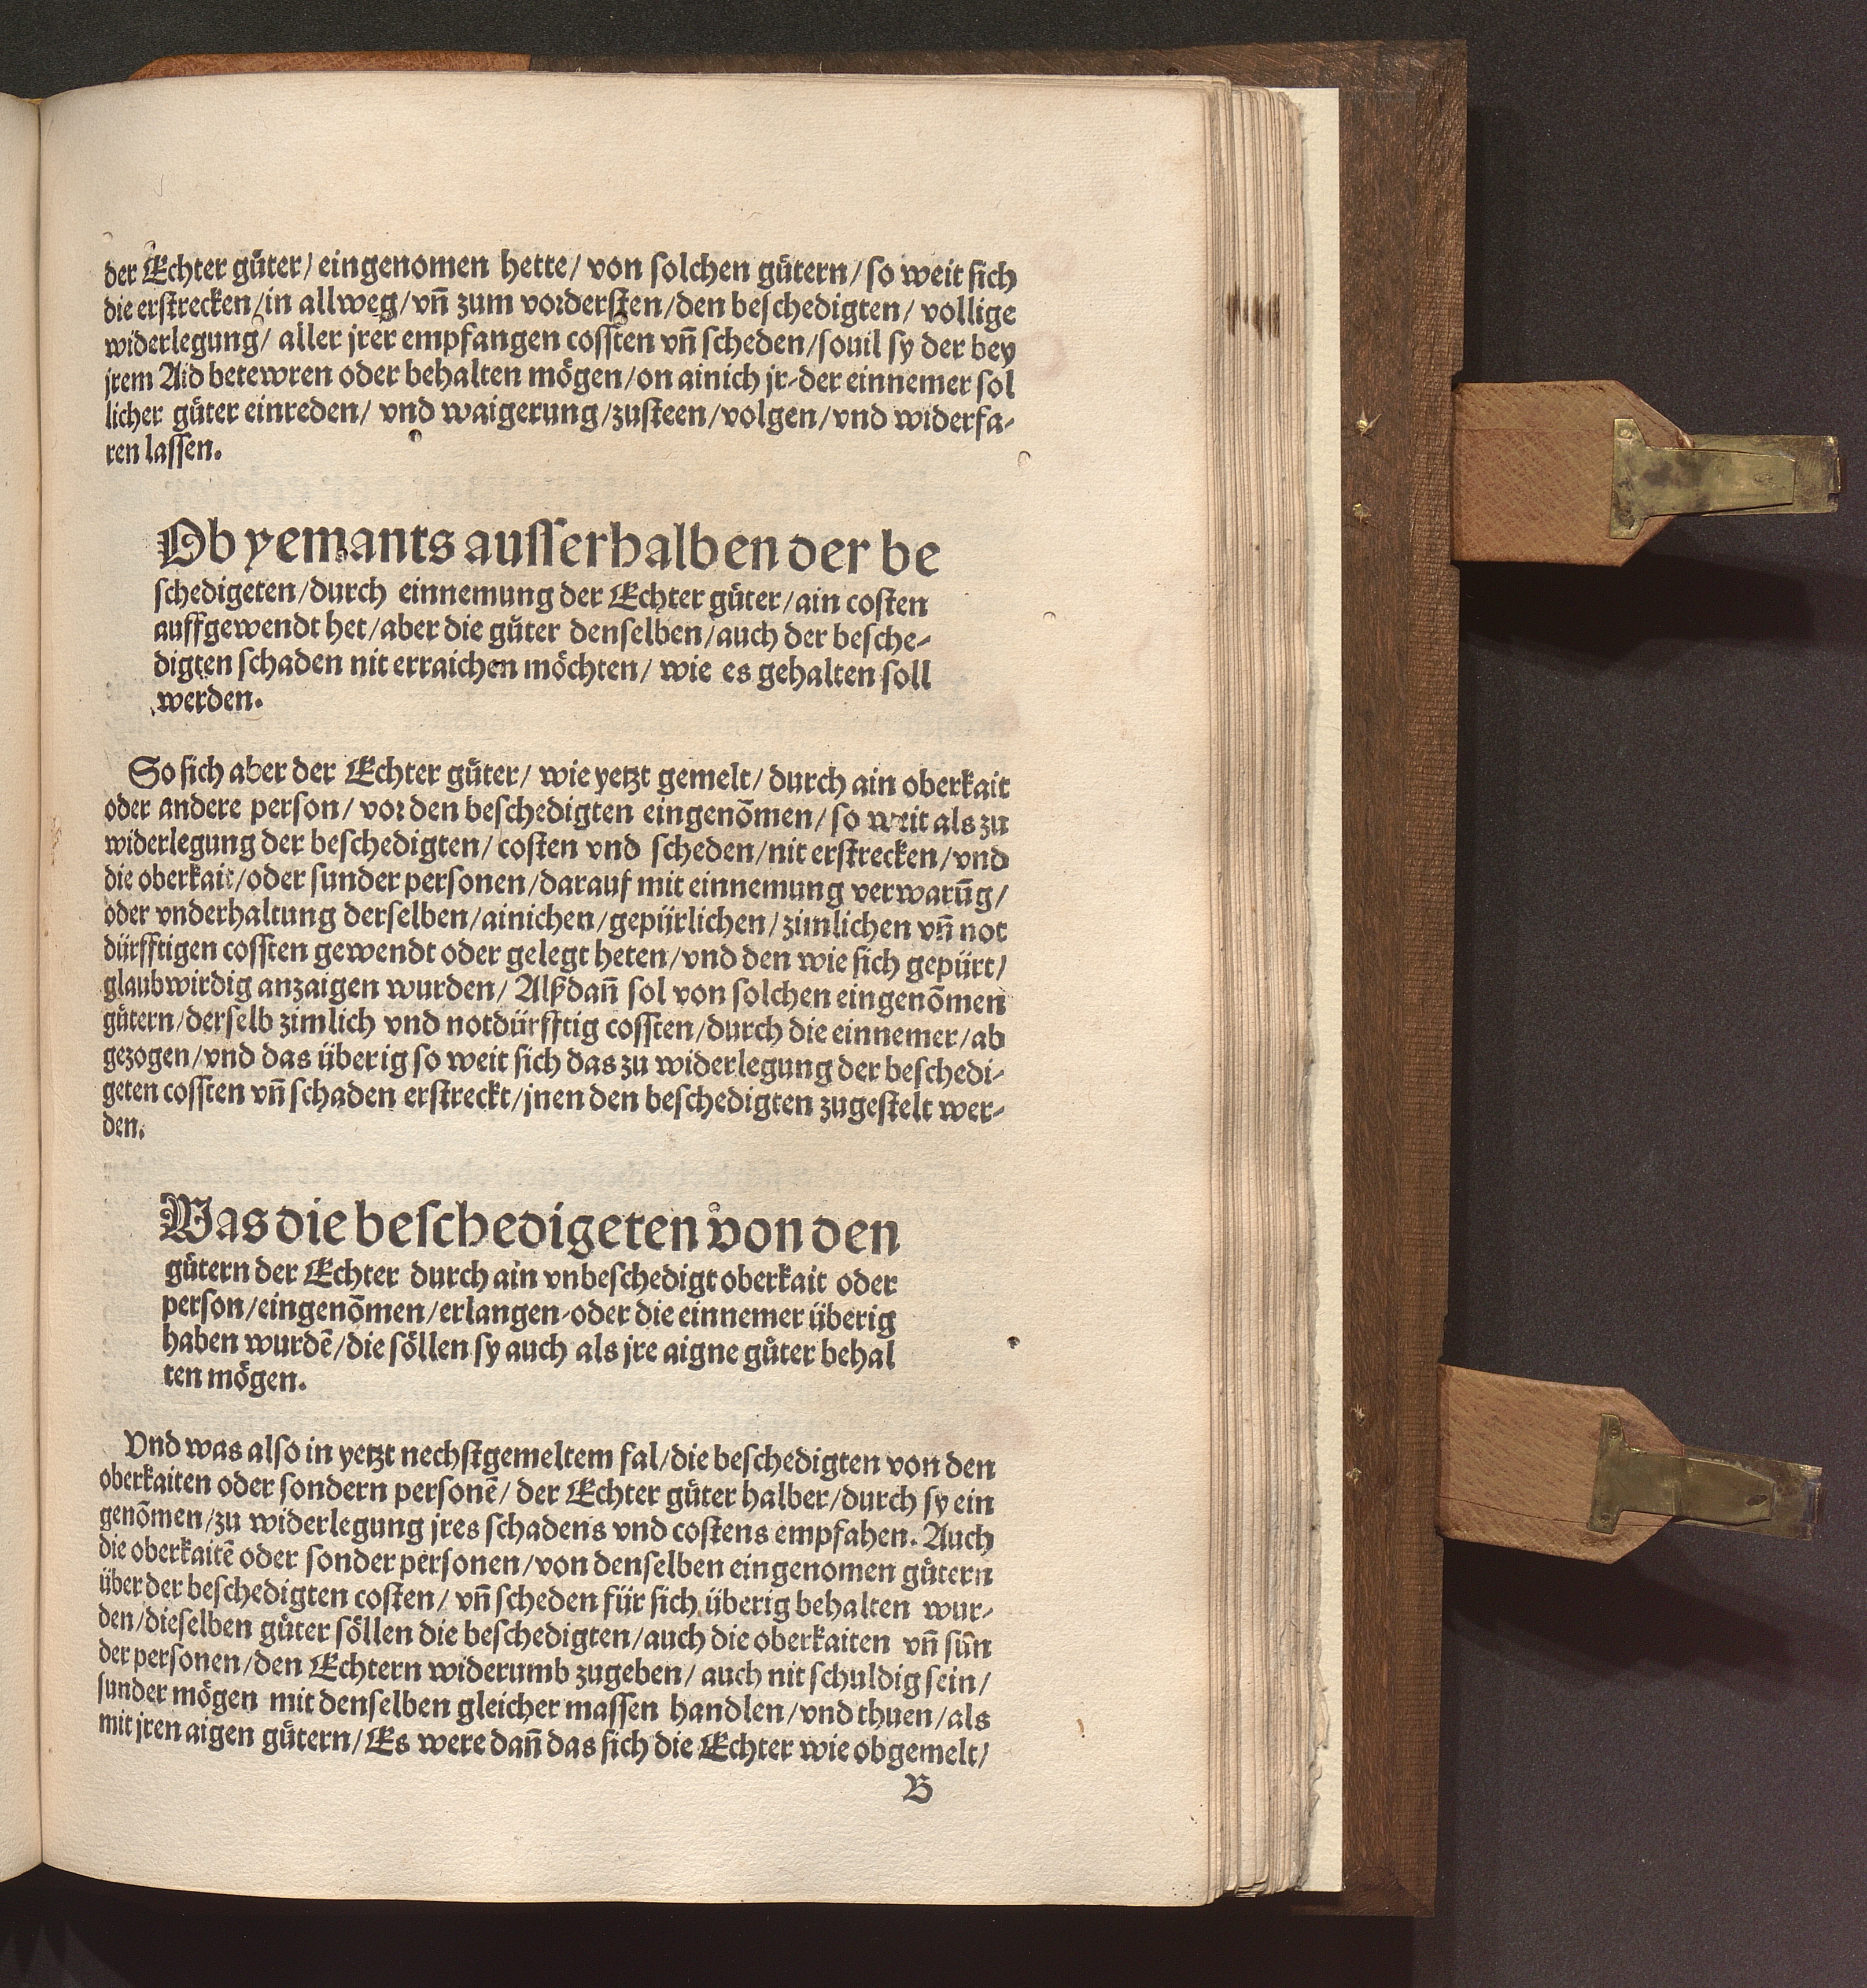 der Echter guͤter/ eingenomen hette/ von solchen guͤtern/ so weit sich
die erstrecken/in allweg/vñ zum vordersten/den beschedigten/ vollige
widerlegung/ aller jrer empfangen cossten vñ scheden/souil sy der bey
jrem Aid betewren oder behalten mögen/on ainich jr-der einnemer sol
licher guͤter einreden/ vnd waigerung/zusteen/volgen/vnd widerfa-
ren lassen.
Ob yemants ausserhalben der be
schedigeten/durch einnemung der Echter guͤter/ain costen
auffgewendt het/aber die guͤter denselben/auch der besche-
digten schaden nit erraichen möchten/ wie es gehalten soll
werden.
So sich aber der Echter guͤter/ wie yetzt gemelt/ durch ain oberkait
oder andere person/ vor den beschedigten eingenōmen/so weit als zu
widerlegung der beschedigten/ costen vnd scheden/nit erstrecken/vnd
die oberkait/oder sunder personen/darauf mit einnemung verwarūg/
oder vnderhaltung derselben/ainichen/gepürlichen/zimlichen vñ not
dürfftigen cossten gewendt oder gelegt heten/vnd den wie sich gepürt/
glaubwirdig anzaigen wurden/ Alßdañ sol von solchen eingenōmen
guͤtern/derselb zimlich vnd notdürfftig cossten/durch die einnemer/ab
gezogen/vnd das überig so weit sich das zu widerlegung der beschedi-
geten cossten vñ schaden erstreckt/jnen den beschedigten zugestelt wer-
den.
Was die beschedigeten von den
guͤtern der Echter durch ain vnbeschedigt oberkait oder
person/eingenōmen/erlangen-oder die einnemer überig
haben wurdē/die söllen sy auch als jre aigne guͤter behal
ten mögen.
Vnd was also in yetzt nechstgemeltem fal/die beschedigten von den
oberkaiten oder sondern personē/ der Echter guͤter halber/durch sy ein
genōmen/zu widerlegung jres schadens vnd costens empfahen. Auch
die oberkaitē oder sonder personen/von denselben eingenomen guͤtern
über der beschedigten costen/ vñ scheden für sich überig behalten wur-
den/dieselben guͤter söllen die beschedigten/auch die oberkaiten vñ sūn
der personen/den Echtern widerumb zugeben/ auch nit schuldig sein/
sunder mögen mit denselben gleicher massen handlen/vnd thuen/als
mit jren aigen guͤtern/Es were dañ das sich die Echter wie obgemelt/
B